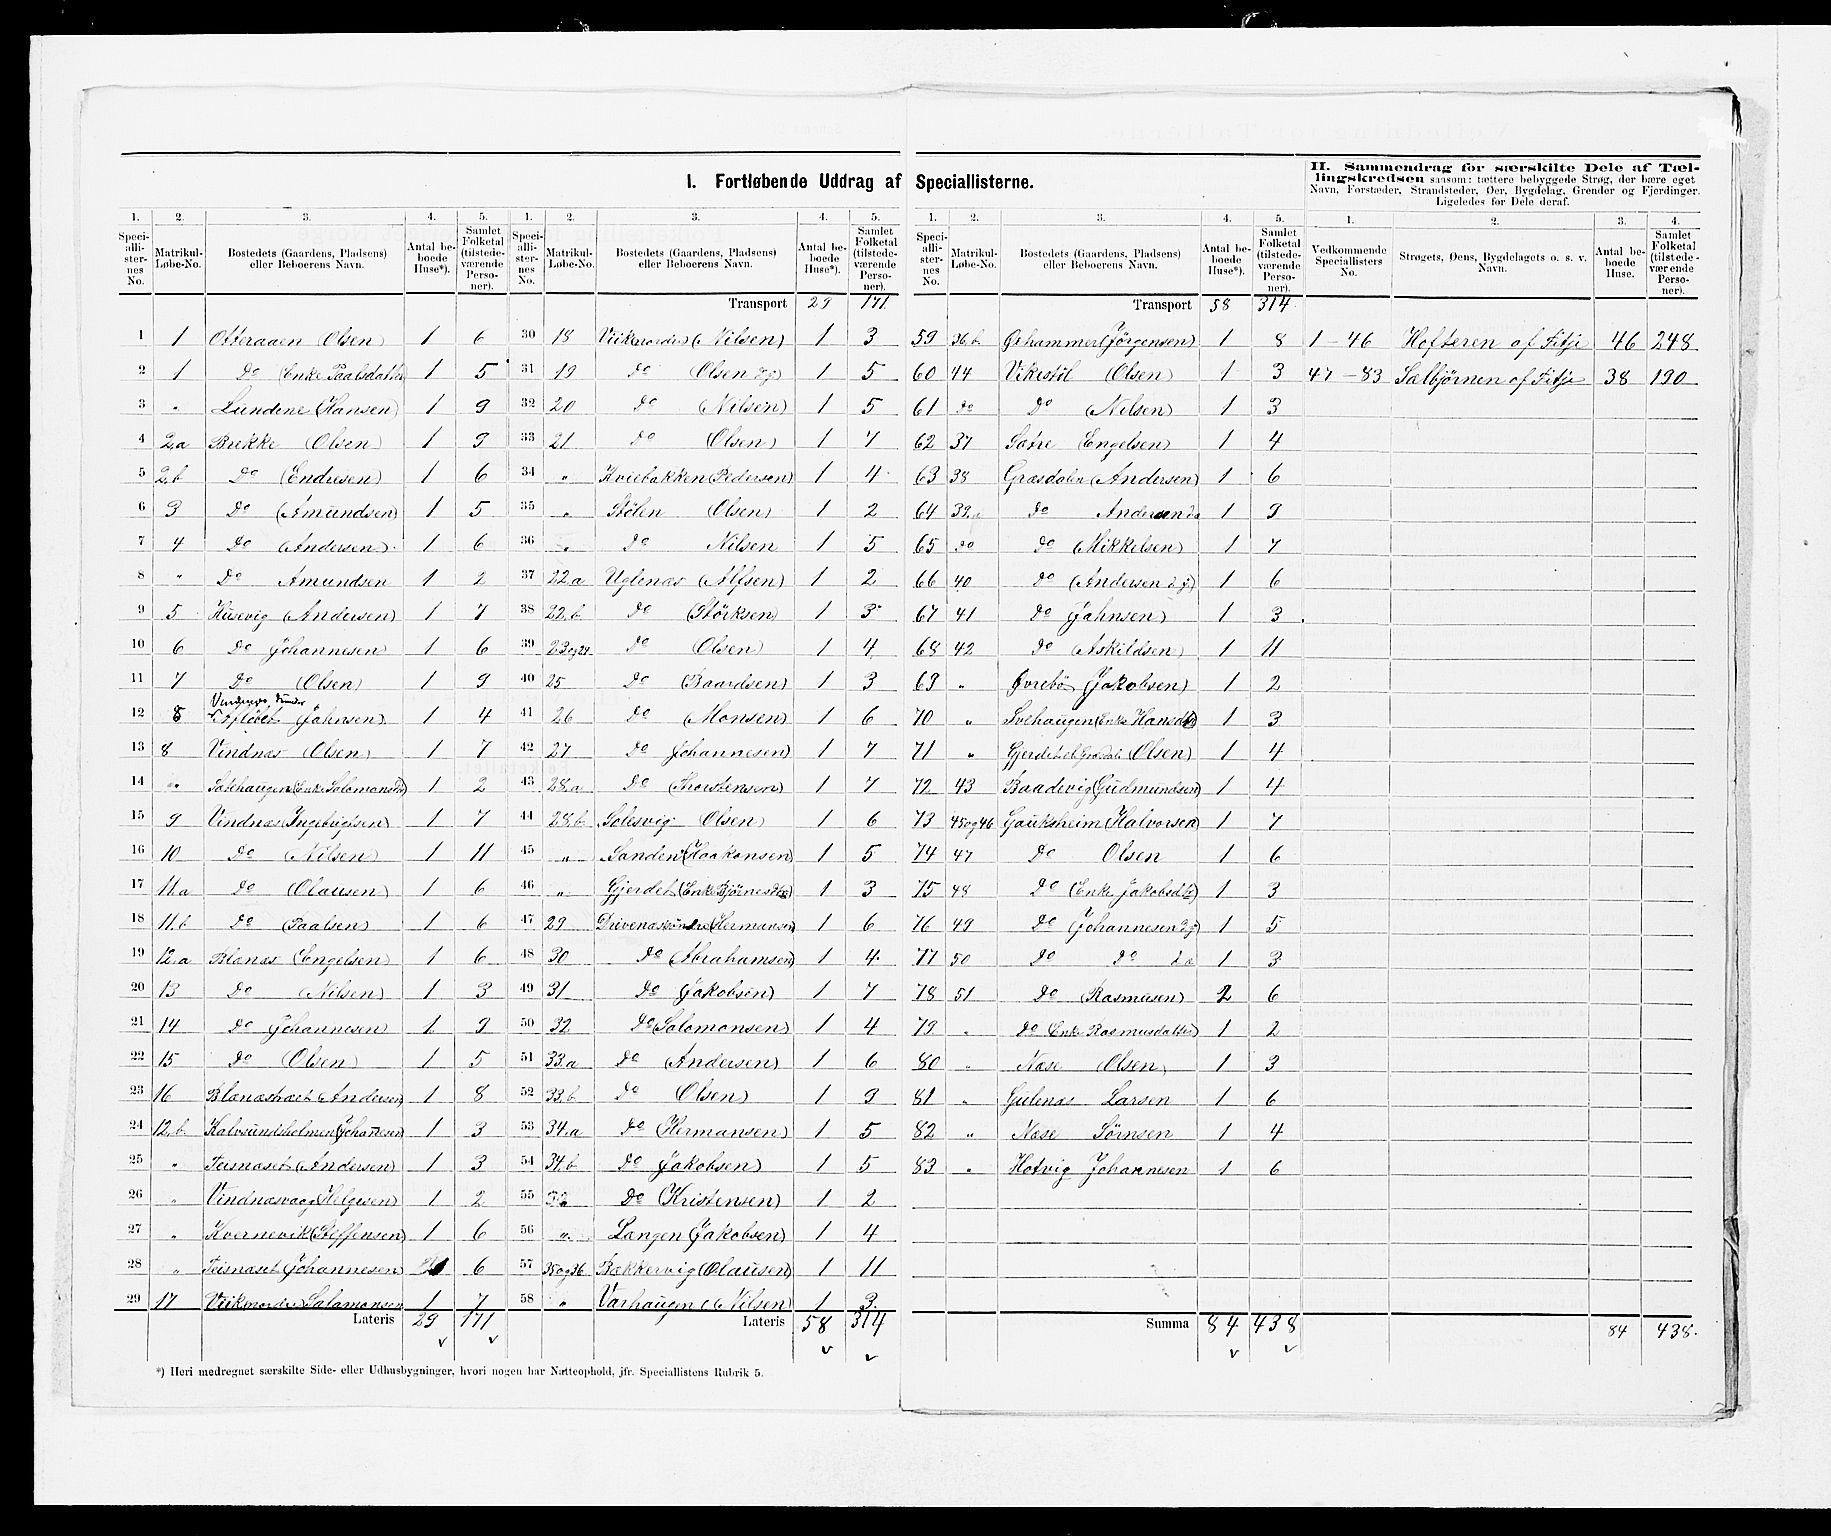 I. Fortløbende Uddrag af Speciallisterne.
II. Sammendrag for særskilte Dele af Tæl-
lingskredsen saasom: tættere bebyggede Strøg, der bære eget
Navn, Forstæder, Strandsteder, Øer, Bygdelag, Grender og Fjerdinger.
Ligeledes for Dele deraf.
1. 2. 3. 4. 5. 1. 2. 3. 4. 5. 1. 2. 3. 4. 5. 1. 2. 3. 4.
Speci-alli-ster-nes No. Matrikul-Løbe-No. Bostedets (Gaardens, Pladsens) eller Beboerens Navn. Antal be-boede Huse*). Samlet Folketal (tilstede-værende Perso-ner).
Speci-alli-ster-nes No. Matrikul-Løbe-No. Bostedets (Gaardens, Pladsens) eller Beboerens Navn. Antal be-boede Huse*). Samlet Folketal (tilstede-værende Perso-ner).
Speci-alli-ster-nes No. Matrikul-Løbe-No. Bostedets (Gaardens, Pladsens) eller Beboerens Navn. Antal be-boede Huse*). Samlet Folketal (tilstede-værende Perso-ner).
Vedkommende Speciallisters No. Strøgets, Øens, Bygdelagets o. s. v. Navn. Antal be-boede Huse. Samlet Folketal (tilstede-værende Perso-ner).
1 1 Otteraaen (Olsen) 1 6
2 1 Do (Enke Paalsdatter) 1 5
3 " Lundene (Hansen) 1 9
4 2.a Brekke (Olsen) 1 9
5 2.b Do (Endresen) 1 6
6 3 Do (Amundsen) 1 5
7 4 Do (Andersen) 1 6
8 " Do Amundsen 1 2
9 5 Husevig (Andersen) 1 7
10 6 Do Johannesen) 1 6
11 7 Do (Olsen) 1 9
12 8 (Jahnsen) 1 4
13 8 Vindnæs (Olsen) 1 7
14 " Satehaugen (Enke Salomonsd) 1 2
15 9 Vindnæs (Ingebrigtsen) 1 7
16 10 Do (Nilsen) 1 11
17 11.a Do (Olausen) 1 6
18 11.b Do (Paalsen) 1 6
19 12.a Blanæs (Engelsen) 1 6
20 13 Do (Nilsen) 1 3
21 14 Do Johannesen) 1 9
22 15 Do (Olsen) 1 5
23 16 (Andersen) 1 8
24 12.b Kalvsundsholmen (Johannesen) 1 3
25 " Teisnæset (Andersen) 1 3
26 " Vindnæsvaag (Helgesen) 1 2
27 " Kvernevik (Steffensen) 1 6
28 " Teisnæset (Johannesen) 1 6
29 17 Viiknordre (Salamonsen 1 7
Lateris 29 171
Transport 29 171
30 18 Viiknordre (Nilsen) 1 3
31 19 Do (Olsen d.y.) 1 5
32 20 Do (Nilsen) 1 5
33 21 Do (Olsen) 1 7
34 " Kviebakken (Pedersen) 1 4
35 " Stølen (Olsen) 1 2
36 " Do Nilsen 1 5
37 22.a Uglenæs (Alfsen) 1 2
38 22.b Do (Størksen) 1 3
39 23og24 Do (Olsen) 1 4
40 25 Do (Baardsen) 1 3
41 26 Do (Monsen) 1 6
42 27 Do Johannesen) 1 7
43 28.a Do (Thorstensen) 1 7
44 28.b Solesvig (Olsen) 1 6
45 " Sanden (Haakonsen) 1 5
46 " Gjerdet (Enke Bjørnesdtr) 1 3
47 29 Drivenæssøndre (Hermansen) 1 6
48 30 Do (Abrahamsen) 1 4
49 31 Do Jakobsen) 1 7
50 32 Do (Salomonsen) 1 4
51 33.a Do (Andersen) 1 6
52 33.b Do (Olsen) 1 9
53 34.a Do (Hermansen) 1 5
54 34.b Do Jakobsen) 1 5
55 Do (Kristensen) 1 2
56 " Langen (Jakobsen) 1 4
57 35og36 Bækkervig (Olausen) 1 11
58 " Varhaugen (Nilsen) 1 3
Lateris 58 314
Transport 58 314
59 36.b Ørhammer (Jörgensen) 1 8
60 44 Vikestøl (Olsen) 1 3
61 do Do (Nilsen) 1 3
62 37 Satre (Engelsen) 1 4
63 38 Græsdalen (Andersen) 1 6
64 39.a Do Andersen 1 9
65 do Do (Mikkelsen) 1 7
66 40 Do (Andersen d.y.) 1 6
67 41 Do Jahnsen) 1 3
68 42 Do (Askildsen) 1 11
69 " Øvrebö (Jakobsen) 1 2
70 " Svehaugen (Enke Hansdtr) 1 3
71 " Gjerdet (Olsen) 1 4
72 43 Baadevig (Gudmundsen) 1 4
73 45og46 Gauksheim (Halvorsen 1 7
74 47 Do Olsen 1 6
75 48 Do (Enke Jakobsdtr) 1 3
76 49 Do (Johannesen d.y. 1 5
77 50 Do Do 1 3
78 51 Do (Rasmusen) 2 6
79 " Do Enke Rasmusdatter 1 2
80 " Næse (Olsen) 1 3
81 " Gulenæs Larsen 1 6
82 " Næse Sörnsen 1 4
83 " Hotvig Johannesen 1 6
Summa 84 438
1 – 46 Hofteren af Fitje 46 248
47 – 83 Sælbjörnen af Fitje 38 190
84 438.
*) Heri medregnet særskilte Side- eller Udhusbygninger, hvori nogen har Natteophold, jfr. Speciallistens Rubrik 5.